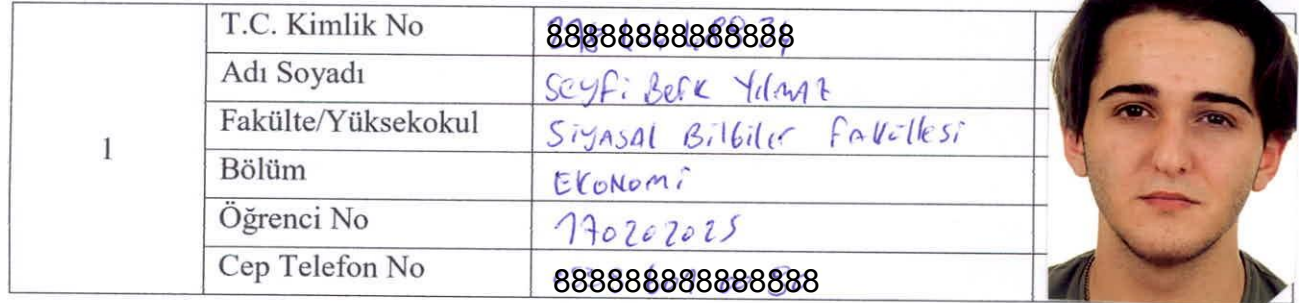 1
T.C. Kimlik No 88888888888888
Adı Soyadı Seyfi Berk Yılmaz
Fakülte/Yüksekokul Siyasal Bilbiler Fakültesi
Bölüm Ekonomi
Öğrenci No 170202025
Cep Telefon No 888888888888888